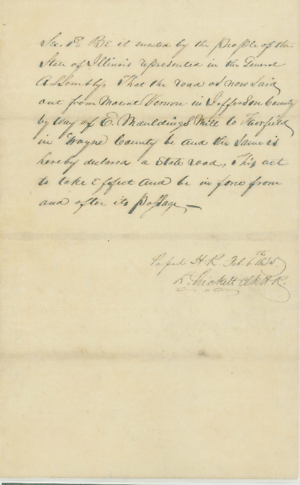 Sec. 1st. Be it enacted by the People of the
State of Illinois represented in the General
Assembly, That the road as now laid
out from Mount Vernon in Jefferson County
by way of E. Mauldings Mill to Fairfield
in Wayne County be and the same is
hereby declared a State road. This act
to take effect and be in force from
and after its passage—
Passed H. R. Feb. 6th
Prickett Clk H. R.